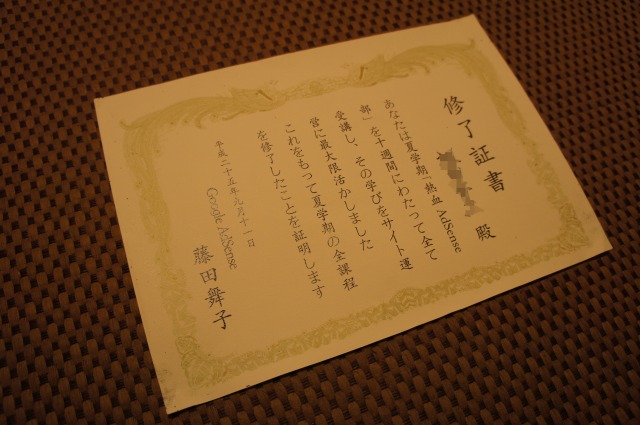 修了証書
殿
あなたは夏学期「熱血 AdSense
部」を十週間にわたって全て
受講し、その学びをサイト運
営に最大限活かしました
これをもって夏学期の全課程
を修了したことを証明します
平成二十五年九月十一日
Google AdSense
藤田舞子